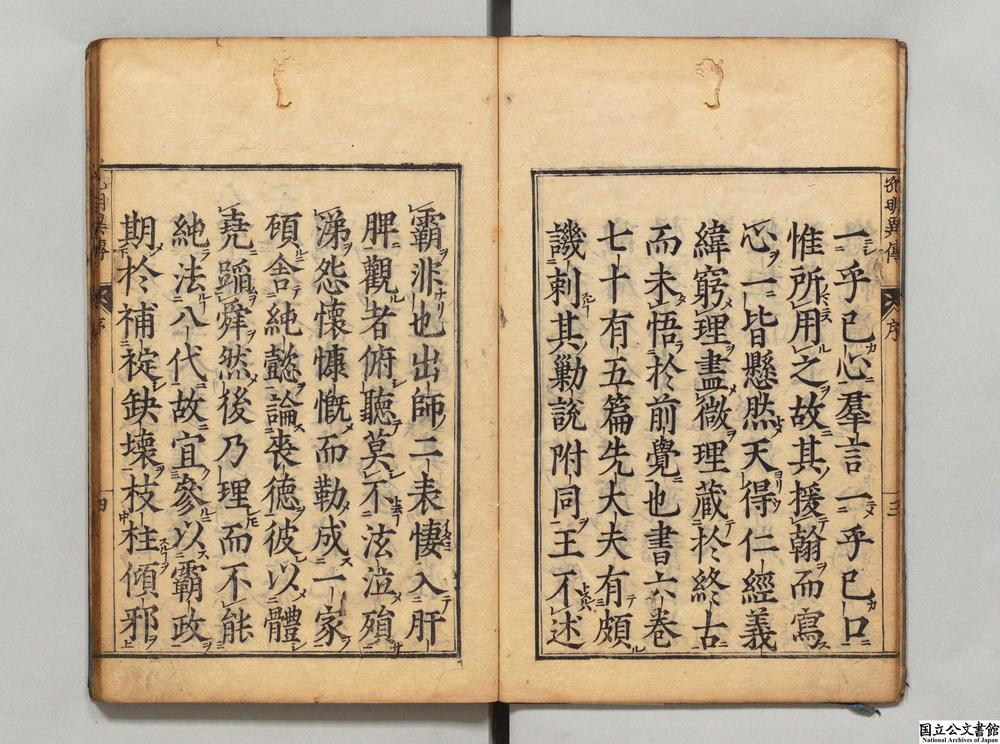 一乎已心羣言一乎已口
惟所用之故其援翰而寫
心一皆懸然天得仁經義
緯窮理盡微理蔵扵終古
而未悟扵前覺也書六巻
七十有五篇先大夫有頗
譏刺其勦説附同王不述
覇非也出師二表悽入肝
脾觀者俯聴莫不泫泣殞
涕怨懐慷慨而勒成一家
碩舎純懿論䘮徳彼以體
堯蹈舜然後乃理而不能
純法八代故宜參以覇政
期扵補䘺缺壊枝柱傾邪
孔明異傳
序
三
孔明異傳
序
四
国立公文書館
National Archives of Japan